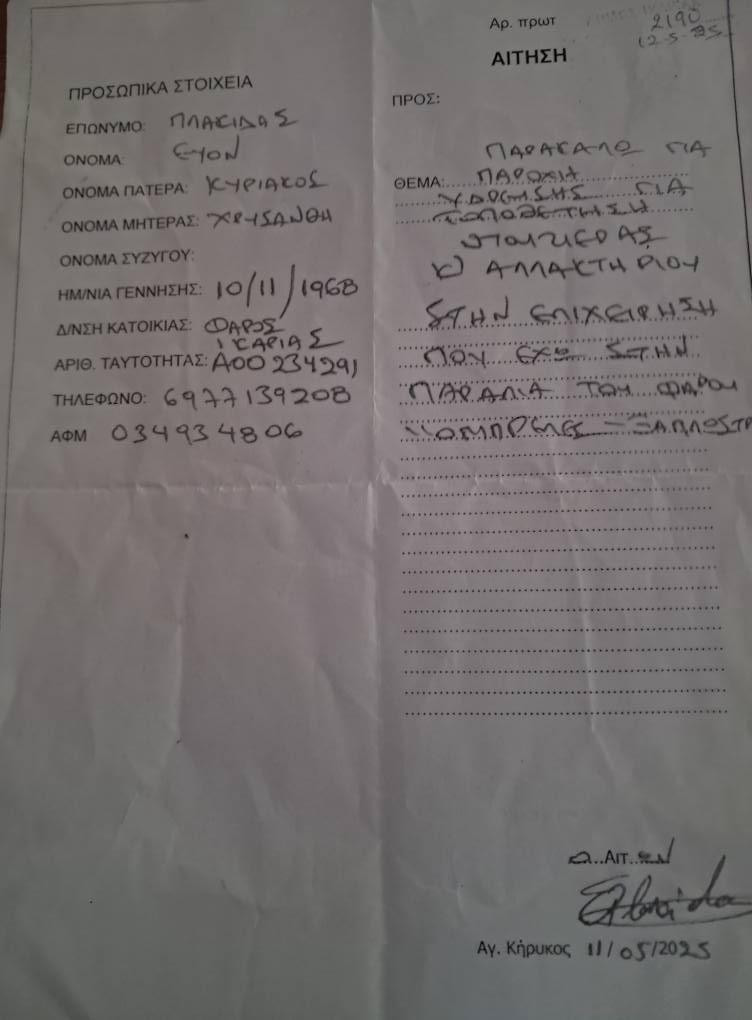 Αρ. πρωτ 2190
12-5-25
ΑΙΤΗΣΗ
ΠΡΟΣΩΠΙΚΑ ΣΤΟΙΧΕΙΑ
ΕΠΩΝΥΜΟ: ΠΛΑΚΙΔΑΣ
ΟΝΟΜΑ:
ΟΝΟΜΑ ΠΑΤΕΡΑ: ΚΥΡΙΑΚΟΣ
ΟΝΟΜΑ ΜΗΤΕΡΑΣ: ΧΡΥΣΑΝΘΗ
ΟΝΟΜΑ ΣΥΖΥΓΟΥ:
ΗΜ/ΝΙΑ ΓΕΝΝΗΣΗΣ: 10/11/1968
Δ/ΝΣΗ ΚΑΤΟΙΚΙΑΣ: ΦΑΡΟΣ
ΙΚΑΡΙΑΣ
ΑΡΙΘ. ΤΑΥΤΟΤΗΤΑΣ: Α00234291
ΤΗΛΕΦΩΝΟ: 6977139208
ΑΦΜ 034934806
ΠΡΟΣ:
ΠΑΡΑΚΑΛΩ ΓΙΑ
ΘΕΜΑ: ΠΑΡΟΧΗ
ΥΔΡΕΥΣΗΣ ΓΙΑ
ΤΟΠΟΘΕΤΗΣΗ
ΝΤΟΥΖΙΕΡΑΣ
Κ) ΑΛΛΑΚΤΗΡΙΟΥ
ΣΤΗΝ ΕΠΙΧΕΙΡΗΣΗ
ΠΟΥ ΕΧΩ ΣΤΗΝ
ΠΑΡΑΛΙΑ ΤΟΥ ΦΑΡΟΥ
ΟΜΠΡΕΛΕΣ - ΞΑΠΛΩΣΤΡ
Ο..Αιτ..ΩΝ
Αγ. Κήρυκος 11/05/2025